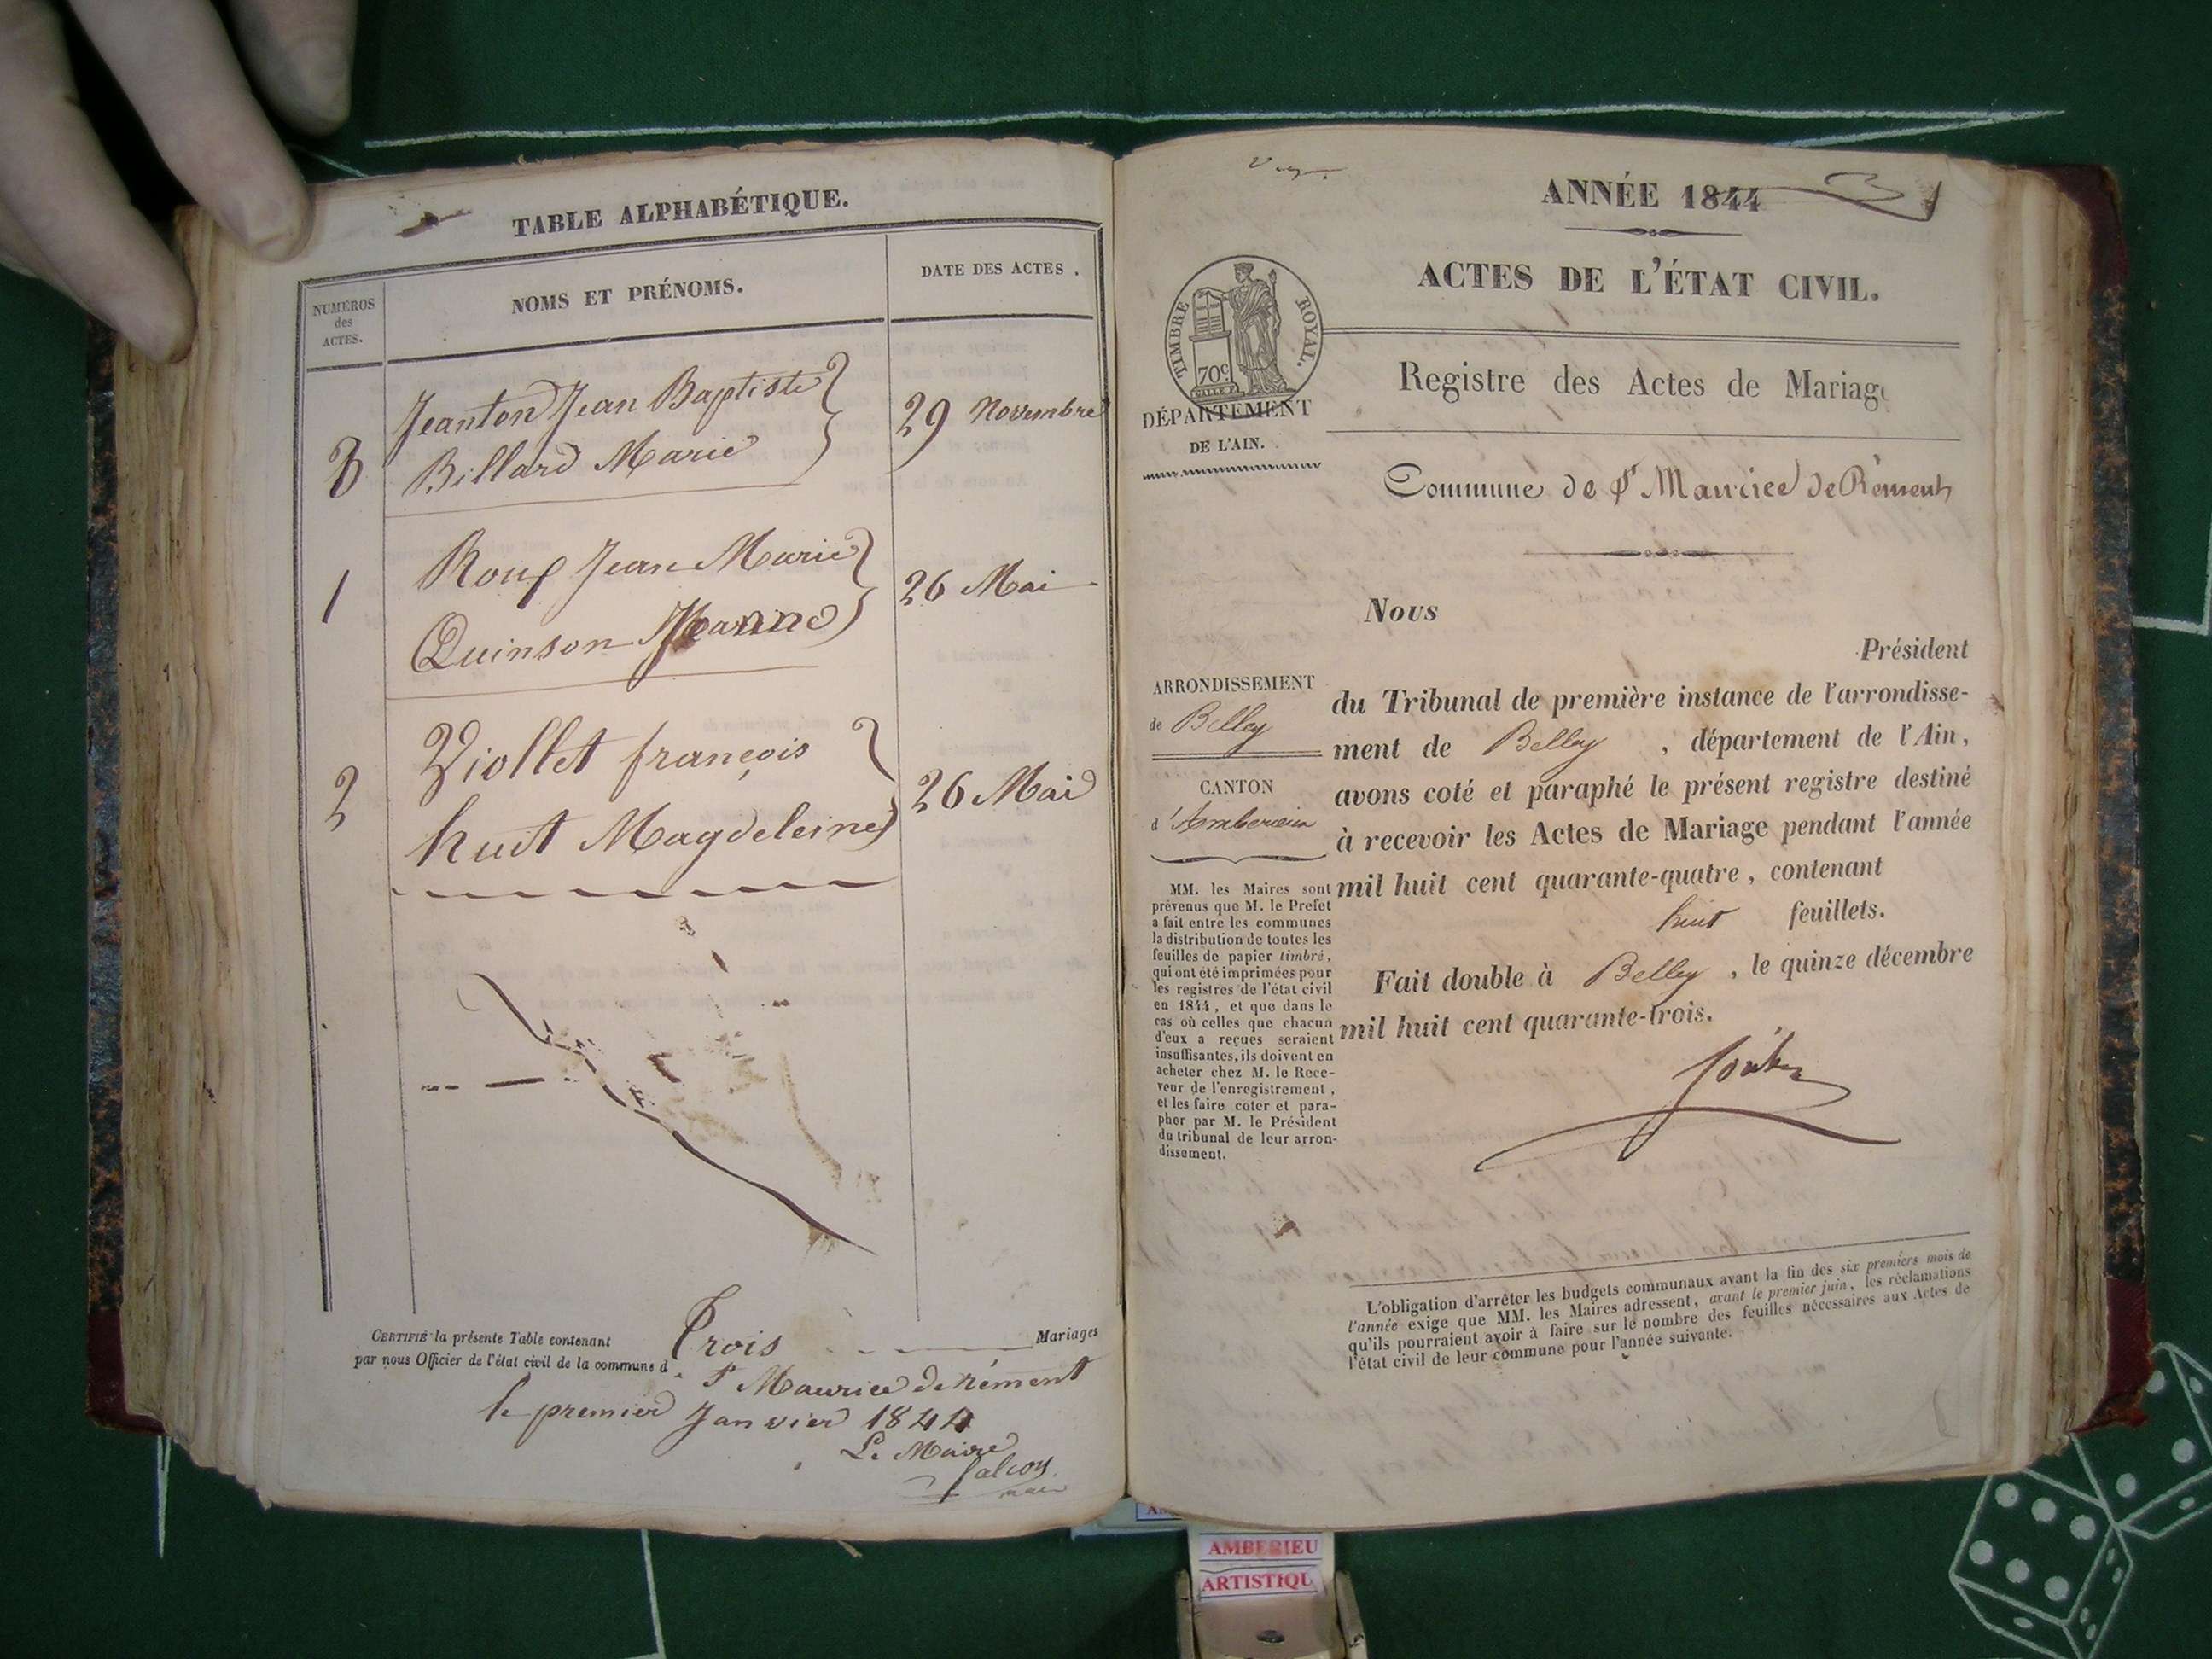 TABLE ALPHABÉTIQUE.
NUMÉROS
des
ACTES.
NOMS ET PRÉNOMS.
DATE DES ACTES.
3
Jeanton Jean Baptiste
Billard Marie
29 Novembre
1
Roux Jean Marie
Quinson Jeanne
26 Mai
2
Viollet françois
huit Magdeleine
26 Mai
CERTIFIÉ la présente Table contenant Trois Mariages
par nous Officier de l'état civil de la commune d
St Maurice de Rément
le premier Janvier 1844
Le Maire
falcoz
maire
ANNÉE 1844
ACTES DE L'ÉTAT CIVIL.
TIMBRE ROYAL.
70c
DÉPARTEMENT
DE L'AIN.
Registre des Actes de Mariage
Commune de St Maurice de Rément
Nous
Président
ARRONDISSEMENT
de Belley
CANTON
d'Amberieu
du Tribunal de première instance de l'arrondisse-
ment de Belley, département de l'Ain,
avons coté et paraphé le présent registre destiné
à recevoir les Actes de Mariage pendant l'année
mil huit cent quarante-quatre, contenant
huit feuillets.
Fait double à Belley, le quinze décembre
mil huit cent quarante-trois.
MM. les Maires sont
prévenus que M. le Préfet
a fait entre les communes
la distribution de toutes les
feuilles de papier timbré,
qui ont été imprimées pour
les registres de l'état civil
en 1844, et que dans le
cas où celles que chacun
d'eux a reçues seraient
insuffisantes, ils doivent en
acheter chez M. le Rece-
veur de l'enregistrement,
et les faire coter et para-
pher par M. le Président
du tribunal de leur arron-
dissement.
L'obligation d'arrêter les budgets communaux avant la fin des six premiers mois de
l'année exige que MM. les Maires adressent, avant le premier juin, les réclamations
qu'ils pourraient avoir à faire sur le nombre des feuilles nécessaires aux Actes de
l'état civil de leur commune pour l'année suivante.
AMBERIEU
ARTISTIQU